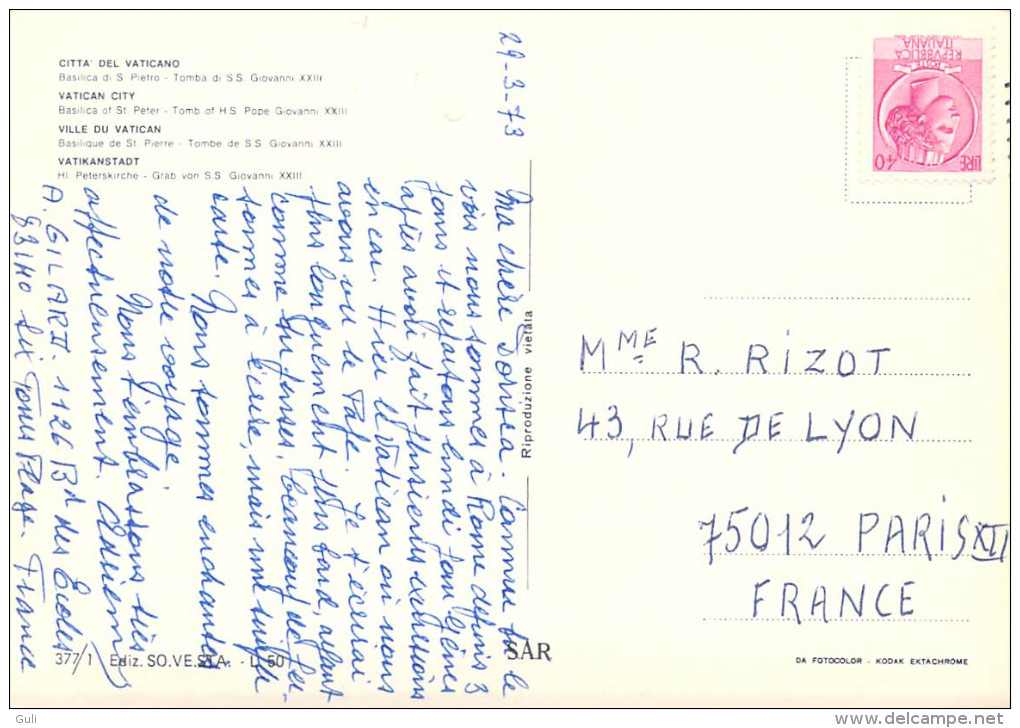 CITTA' DEL VATICANO
Basilica di S. Pietro - Tomba di S.S. Giovanni XXIII
VATICAN CITY
Basilica of St. Peter - Tomb of H.S. Pope Giovanni XXIII
VILLE DU VATICAN
Basilique de St. Pierre - Tombe de S.S. Giovanni XXIII
VATIKANSTADT
Hl. Peterskirche - Grab von S.S. Giovanni XXIII
29-3-73
Ma chère Comme tu le
vois nous sommes à Rome depuis 3
jours et repartons lundi pour Gênes
après avoir fait plusieurs excursions
en car. Hier le Vatican où nous
avons vu le Pape. Je t'écrirai
plus longuement plus tard, ayant
comme tu penses, beaucoup de per-
sonnes à écrire, mais une simple
carte. Nous sommes enchantés
de notre voyage.
Nous t'embrassons très
affectueusement.
A. GILARDI. 1126 Bd des Ecoles
83140 Six Fours Plage. France
377/1 Ediz. SO.VE.S.I.A. - L. 50
Riproduzione vietata
SAR
REPVBBLICA
ITALIANA
POSTE
LIRE 40
MME R. RIZOT
43, RUE DE LYON
75012 PARIS XII
FRANCE
DA FOTOCOLOR - KODAK EKTACHROME
Guli
http://www.delcampe.net